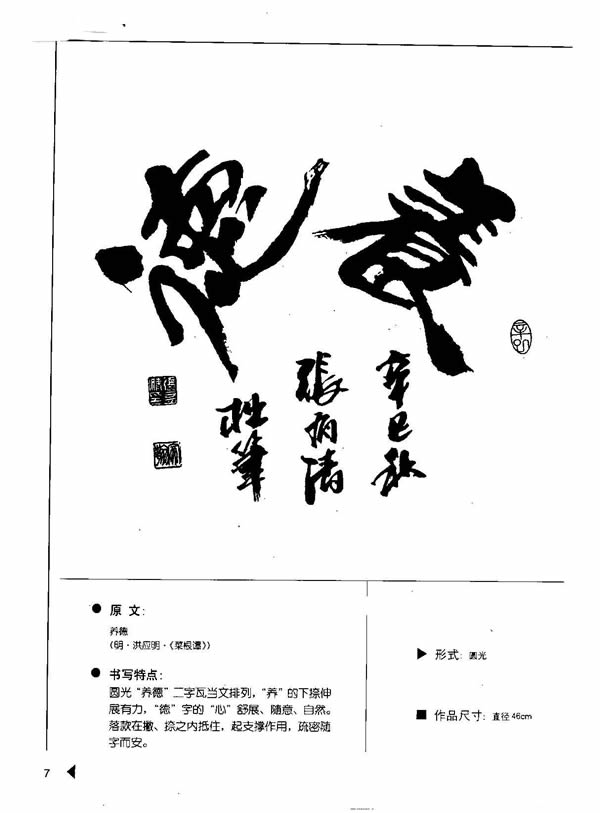 養德
辛巳秋
張炳清
拙筆
● 原文:
养德
(明·洪应明·《菜根谭》)
● 书写特点:
圆光“养德”二字瓦当文排列,“养”的下捺伸
展有力,“德”字的“心”舒展、随意、自然。
落款在撇、捺之内抵住,起支撑作用,疏密随
字而安。
▶ 形式: 圆光
■ 作品尺寸: 直径46cm
7 ◀